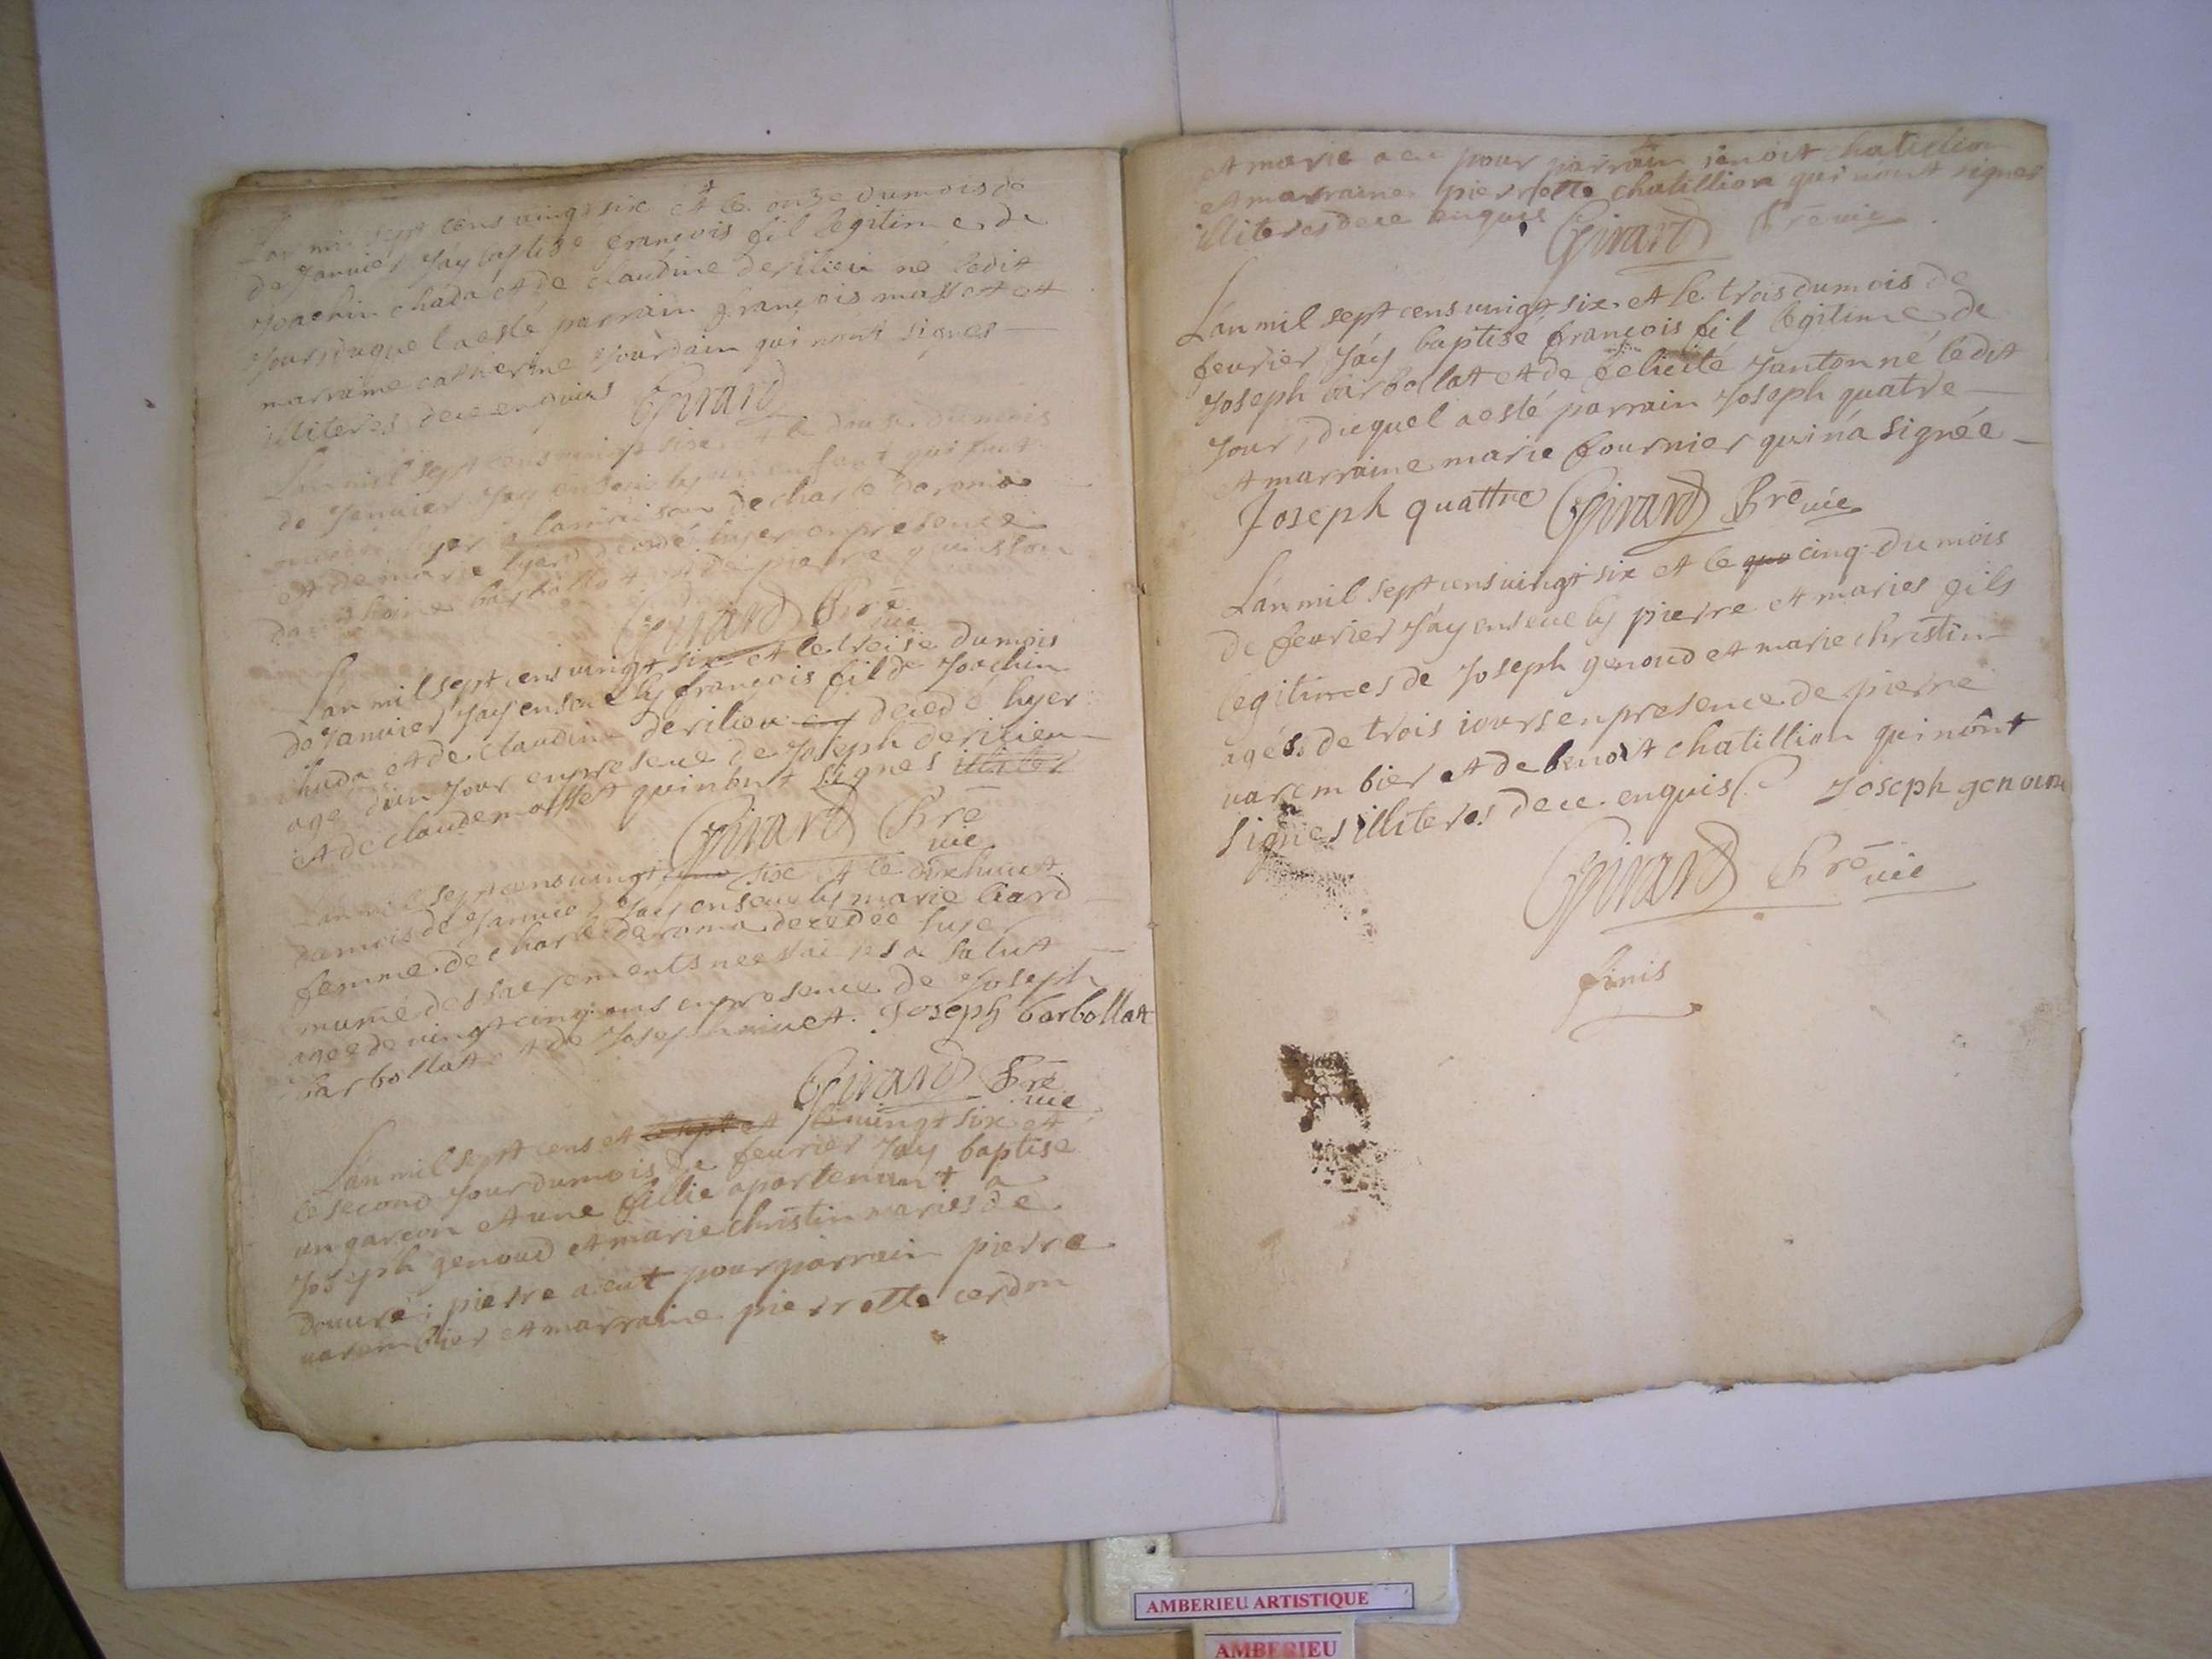 L'an mil sept cens vingt six et le onze du mois de
de Janvier J'ay baptisé françois fil legitime de
Joachin chada et de claudine derilieu né ledit
Jour, duquel a esté parrain françois massett et
marraine catherine Jourdain qui nont signes
illiteres de ce enquis Girard
L'an mil sept cens vingt six et le douse du mois
de Janvier J'ay enseuely un enfant qui fut
la maison de charle deroma
et de marie decedé hyer en presence
barbollat et de pierre
Girard Prē vic
L'an mil sept cens vingt six et le treise du mois
de Janvier J'ay enseuely françois fil de Joachin
chada et de claudine derilieu decedé hyer
agé d'un Jour en presence de Joseph derilieu
et de claude massett qui nont signes illiter
Girard Prē vic
L'an mil sept cens vingt six et le dix huict
du mois de Janvier J'ay enseuely marie liard
femme de charle deroma decedée hyer
munie des sacrements necessaires a salut
agée de vingt cinq ans en presence de Joseph
barbollat et de Joseph nivet. Joseph barbollat
Girard Prē vic
L'an mil sept cens et vingt six et
le second Jour du mois de feurier J'ay baptisé
un garcon et une fillie apartenant a
Joseph genoud et marie christin maries de
douvre; pierre a eut pour parrain pierre
varembier et marraine pierrette cerdon
et marie a eu pour parrain benoit chatillion
et marraine pierrette chatillion qui nont signes
illiteres de ce enquis Girard Prē vic
L'an mil sept cens vingt six et le trois du mois de
feurier J'ay baptisé françois fil legitime de
Joseph barbollat et de felicité Janton né ledit
Jour, duquel a esté parrain Joseph quatre
et marraine marie fournier qui n'a signée
Joseph quattre Girard Prē vic
L'an mil sept cens vingt six et le qua cinq du mois
de feurier J'ay enseuely pierre et maries fils
legitimes de Joseph genoud et marie christin
agés de trois iours en presence de pierre
varembier et de benoit chatillion qui nont
signes illiteres de ce enquis Joseph genoud
Girard Prē vic
finis
AMBERIEU ARTISTIQUE
AMBERIEU